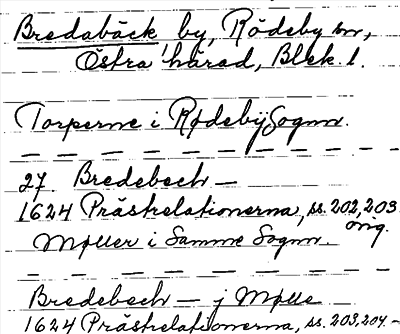 Bredabäck by, Rödeby sn,
Östra härad, Blek. l.
Torperne i Rødeby Sognn.
27. Bredebech —
1624 Prästrelationerna, ss. 202, 203
orig.
Møller i Samme Sognn.
Bredebech — j Mølle
1624 Prästrelationerna, ss. 203, 204. —